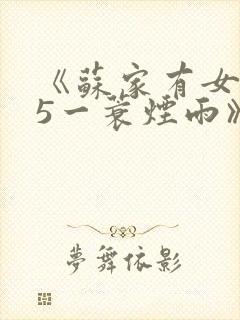 《蘇家有女
5一蓑煙雨》
夢舞依影